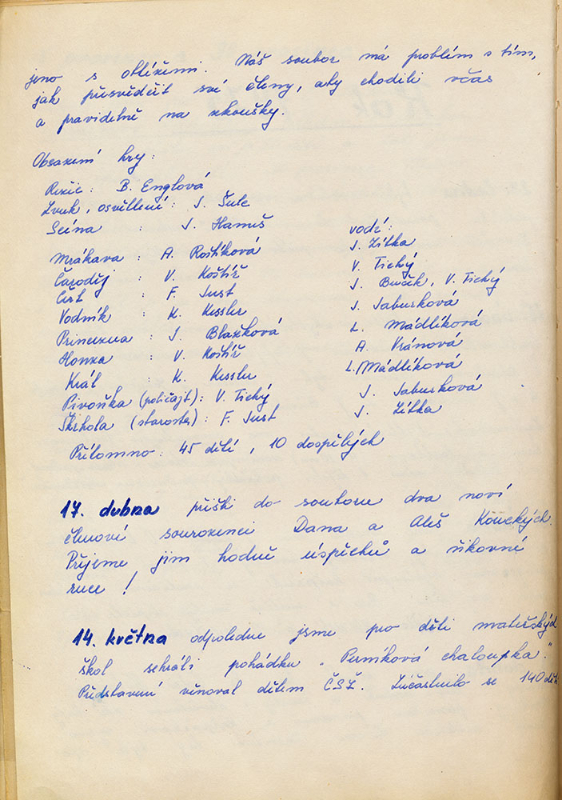 jeno s obtížemi. Náš soubor má problém s tím,
jak přesvědčit své členy, aby chodili včas
a pravidelně na zkoušky.
Obsazení hry:
Režie: B. Englová
Zvuk, osvětlení: J. Šulc
Scéna : J. Hamš
vodí:
Mrákava : A. Roštíková J. Zítka
Čaroděj : V. Koštíř V. Tichý
Čert : F. Just J. Bučík, V. Tichý
Vodník : K. Kessler J. Jaburková
Princezna : J. Blažková L. Mádlíková
Honza : V. Koštíř A. Vránová
Král : K. Kessler L. Mádlíková
Pivoňka (policajt): V. Tichý J. Jaburková
Škrhola (starosta): F. Just J. Zítka
Přítomno: 45 dětí, 10 dospělých
17. dubna přišli do souboru dva noví
členové sourozenci Dana a Aleš
Přejeme jim hodně úspěchů a šikovné
ruce!
14. května odpoledne jsme pro děti mateřských
škol sehráli pohádku „Perníková chaloupka".
Představení věnoval dětem ČSŽ. Zúčastnilo se 140 dětí